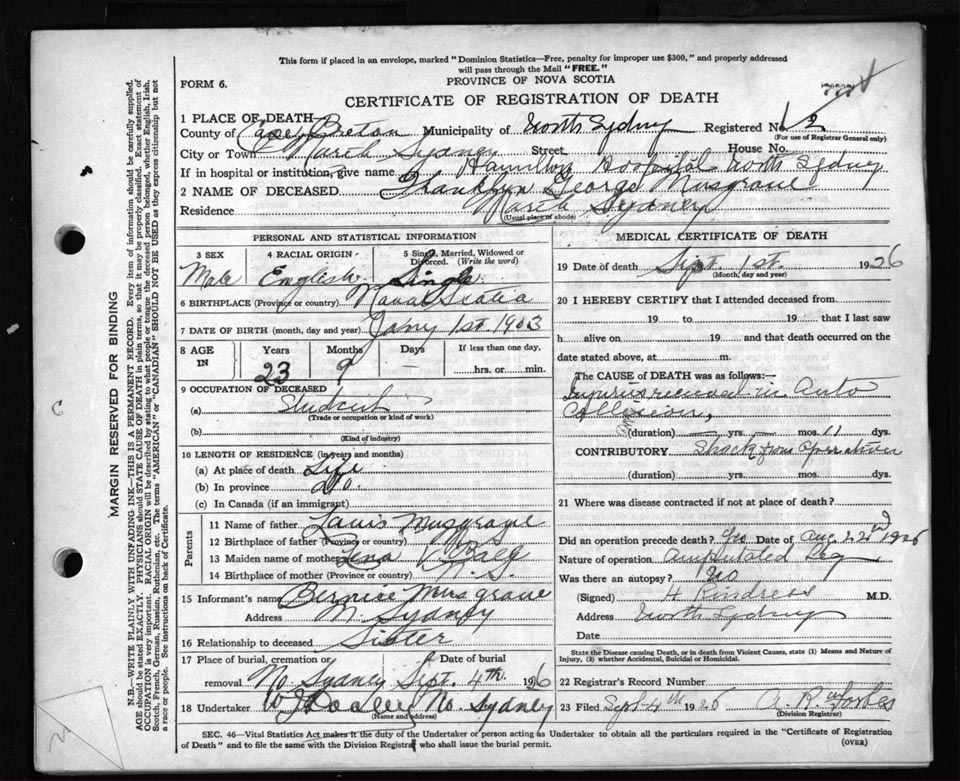 This form if placed in an envelope, marked "Dominion Statistics—Free, penalty for improper use $300," and properly addressed
will pass through the Mail "FREE."
FORM 6.
PROVINCE OF NOVA SCOTIA
CERTIFICATE OF REGISTRATION OF DEATH
1 PLACE OF DEATH
County of Cape Breton Municipality of North Sydney Registered No.
(For use of Registrar General only)
City or Town North Sydney Street House No.
If in hospital or institution, give name Hamilton Hospital North Sydney
2 NAME OF DECEASED Franklyn George Musgrave
Residence North Sydney
(Usual place of abode)
PERSONAL AND STATISTICAL INFORMATION
3 SEX 4 RACIAL ORIGIN 5 Single, Married, Widowed or Divorced. (Write the word)
Male English Single
6 BIRTHPLACE (Province or country) Nova Scotia
7 DATE OF BIRTH (month, day and year) Jany 1st 1903
8 AGE IN Years Months Days If less than one day,
23 9 — hrs. or min.
9 OCCUPATION OF DECEASED
(a) Student
(Trade or occupation or kind of work)
(b)
(Kind of industry)
10 LENGTH OF RESIDENCE (in years and months)
(a) At place of death Life
(b) In province do.
(c) In Canada (if an immigrant)
Parents
11 Name of father Louis Musgrave
12 Birthplace of father (Province or country) N.S.
13 Maiden name of mother Lena
14 Birthplace of mother (Province or country) N.S.
15 Informant's name Bernice Musgrave
Address N. Sydney
16 Relationship to deceased Sister
17 Place of burial, cremation or removal Date of burial
No Sydney Sept. 4th 1926
18 Undertaker No. Sydney
(Name and address)
MEDICAL CERTIFICATE OF DEATH
19 Date of death Sept. 1st. 1926
(Month, day and year)
20 I HEREBY CERTIFY that I attended deceased from
19 to 19 that I last saw
h alive on 19 and that death occurred on the
date stated above, at m.
The CAUSE OF DEATH was as follows:—
Injuries received in Auto
Collision,
(duration) — yrs. — mos. 11 dys.
CONTRIBUTORY Shock from Operation
(duration) yrs. mos. dys.
21 Where was disease contracted if not at place of death?
Did an operation precede death? Yes Date of Aug. 22nd 1926
Nature of operation Amputated Leg
Was there an autopsy? No
(Signed) H Rindress M.D.
Address North Sydney
Date
State the Disease causing Death, or in death from Violent Causes, state (1) Means and Nature of
Injury, (2) whether Accidental, Suicidal or Homicidal.
22 Registrar's Record Number
23 Filed Sept 4th 1926 A. R. Forbes
(Division Registrar)
SEC. 46—Vital Statistics Act makes it the duty of the Undertaker or person acting as Undertaker to obtain all the particulars required in the "Certificate of Registration
of Death" and to file the same with the Division Registrar who shall issue the burial permit.
(OVER)
MARGIN RESERVED FOR BINDING
N.B.—WRITE PLAINLY WITH UNFADING INK—THIS IS A PERMANENT RECORD. Every item of information should be carefully supplied.
AGE should be stated EXACTLY. PHYSICIANS should STATE CAUSE OF DEATH in plain terms, so that it may be properly classified. Exact statement of
OCCUPATION is very important. RACIAL ORIGIN will be described by stating to what people or tongue the deceased person belonged, whether English, Irish,
Scotch, French, German, Russian, Ruthenian, etc. The terms "AMERICAN" or "CANADIAN" SHOULD NOT BE USED as they express citizenship but not
a race or people. See instructions on back of Certificate.